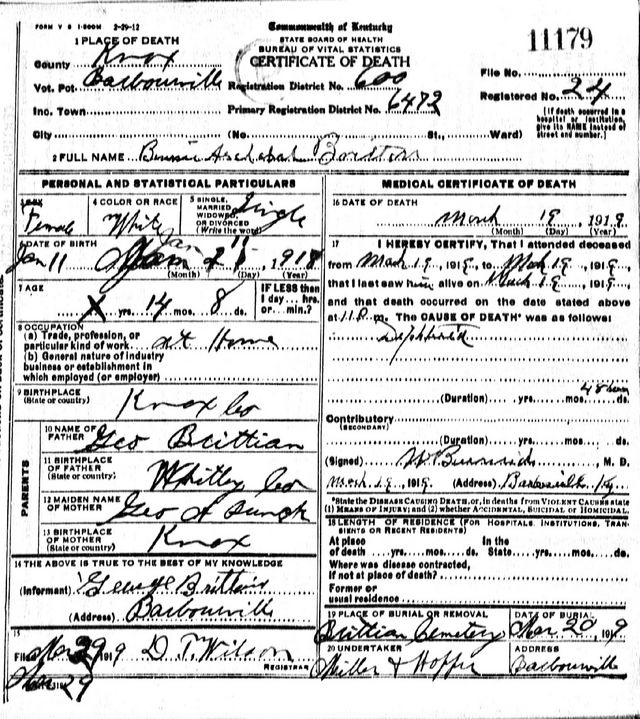 FORM V S 1-500M 2-29-12
Commonwealth of Kentucky
STATE BOARD OF HEALTH
BUREAU OF VITAL STATISTICS
CERTIFICATE OF DEATH
11179
1 PLACE OF DEATH
County Knox
Vot. Pct. Barbourville
Inc. Town
City (No. St., Ward)
Registration District No. 600
Primary Registration District No. 6472
File No.
Registered No. 24
[If death occurred in a
hospital or institution,
give its NAME instead of
street and number.]
2 FULL NAME
PERSONAL AND STATISTICAL PARTICULARS
Female
4 COLOR OR RACE
White
5 SINGLE,
MARRIED,
WIDOWED,
OR DIVORCED
(Write the word)
Single
DATE OF BIRTH
Jan 11
Jan 11
1918
(Month) (Day) (Year)
7 AGE
yrs. 14 mos. 8 ds.
IF LESS than
1 day... hrs.
or... min.?
8 OCCUPATION
(a) Trade, profession, or
particular kind of work at Home
(b) General nature of industry
business or establishment in
which employed (or employer)
9 BIRTHPLACE
(State or country)
Knox Co
PARENTS
10 NAME OF
FATHER
Geo Brittian
11 BIRTHPLACE
OF FATHER
(State or country)
Whitley Co
12 MAIDEN NAME
OF MOTHER
Geo A
13 BIRTHPLACE
OF MOTHER
(State or country)
Knox
14 THE ABOVE IS TRUE TO THE BEST OF MY KNOWLEDGE
(Informant) George Brittian
(Address) Barbourville
15
Filed Mar 29 1919 D. T. Wilson
REGISTRAR
Mar 29
MEDICAL CERTIFICATE OF DEATH
16 DATE OF DEATH
March 19, 1919
(Month) (Day) (Year)
17 I HEREBY CERTIFY, That I attended deceased
from Mach 19, 1919, to Mch 19, 1919,
that I last saw him alive on Mach 19, 1919,
and that death occurred on the date stated above
at 11 P. m. The CAUSE OF DEATH* was as follows:
48 hours
(Duration) yrs. mos. ds.
Contributory
(SECONDARY)
(Duration) yrs. mos. ds.
(Signed) M. D.
Mch 19, 1919. (Address) Barbourville Ky
*State the DISEASE CAUSING DEATH, or, in deaths from VIOLENT CAUSES state
(1) MEANS OF INJURY; and (2) whether ACCIDENTAL, SUICIDAL or HOMICIDAL.
18 LENGTH OF RESIDENCE (FOR HOSPITALS, INSTITUTIONS, TRAN-
SIENTS OR RECENT RESIDENTS)
At place
of death yrs. mos. ds.
In the
State yrs. mos. ds.
Where was disease contracted,
if not at place of death?
Former or
usual residence
19 PLACE OF BURIAL OR REMOVAL
Brittian Cemetery
DATE OF BURIAL
Mar. 20, 1919
20 UNDERTAKER
Miller & Hopper
ADDRESS
Barbourville